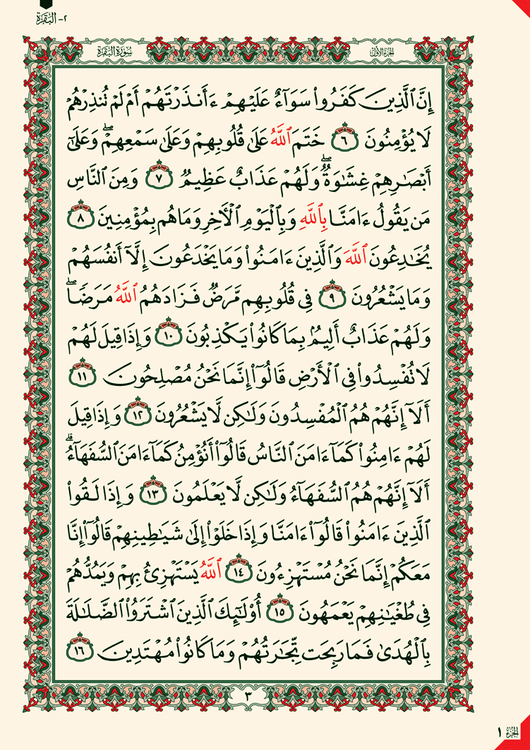 ٢- البَقَرَة
سُورَةُ البَقَرَة
الجزء الأول
إِنَّ ٱلَّذِينَ كَفَرُوا۟ سَوَآءٌ عَلَيْهِمْ ءَأَنذَرْتَهُمْ أَمْ لَمْ تُنذِرْهُمْ
لَا يُؤْمِنُونَ ٦ خَتَمَ ٱللَّهُ عَلَىٰ قُلُوبِهِمْ وَعَلَىٰ سَمْعِهِمْ ۖ وَعَلَىٰٓ
أَبْصَـٰرِهِمْ غِشَـٰوَةٌ ۖ وَلَهُمْ عَذَابٌ عَظِيمٌ ٧ وَمِنَ ٱلنَّاسِ
مَن يَقُولُ ءَامَنَّا بِٱللَّهِ وَبِٱلْيَوْمِ ٱلْـَٔاخِرِ وَمَا هُم بِمُؤْمِنِينَ ٨
يُخَـٰدِعُونَ ٱللَّهَ وَٱلَّذِينَ ءَامَنُوا۟ وَمَا يَخْدَعُونَ إِلَّآ أَنفُسَهُمْ
وَمَا يَشْعُرُونَ ٩ فِى قُلُوبِهِم مَّرَضٌ فَزَادَهُمُ ٱللَّهُ مَرَضًا ۖ
وَلَهُمْ عَذَابٌ أَلِيمٌۢ بِمَا كَانُوا۟ يَكْذِبُونَ ١٠ وَإِذَا قِيلَ لَهُمْ
لَا تُفْسِدُوا۟ فِى ٱلْأَرْضِ قَالُوٓا۟ إِنَّمَا نَحْنُ مُصْلِحُونَ ١١
أَلَآ إِنَّهُمْ هُمُ ٱلْمُفْسِدُونَ وَلَـٰكِن لَّا يَشْعُرُونَ ١٢ وَإِذَا قِيلَ
لَهُمْ ءَامِنُوا۟ كَمَآ ءَامَنَ ٱلنَّاسُ قَالُوٓا۟ أَنُؤْمِنُ كَمَآ ءَامَنَ ٱلسُّفَهَآءُ ۗ
أَلَآ إِنَّهُمْ هُمُ ٱلسُّفَهَآءُ وَلَـٰكِن لَّا يَعْلَمُونَ ١٣ وَإِذَا لَقُوا۟
ٱلَّذِينَ ءَامَنُوا۟ قَالُوٓا۟ ءَامَنَّا وَإِذَا خَلَوْا۟ إِلَىٰ شَيَـٰطِينِهِمْ قَالُوٓا۟ إِنَّا
مَعَكُمْ إِنَّمَا نَحْنُ مُسْتَهْزِءُونَ ١٤ ٱللَّهُ يَسْتَهْزِئُ بِهِمْ وَيَمُدُّهُمْ
فِى طُغْيَـٰنِهِمْ يَعْمَهُونَ ١٥ أُو۟لَـٰٓئِكَ ٱلَّذِينَ ٱشْتَرَوُا۟ ٱلضَّلَـٰلَةَ
بِٱلْهُدَىٰ فَمَا رَبِحَت تِّجَـٰرَتُهُمْ وَمَا كَانُوا۟ مُهْتَدِينَ ١٦
٣
الجزء ١